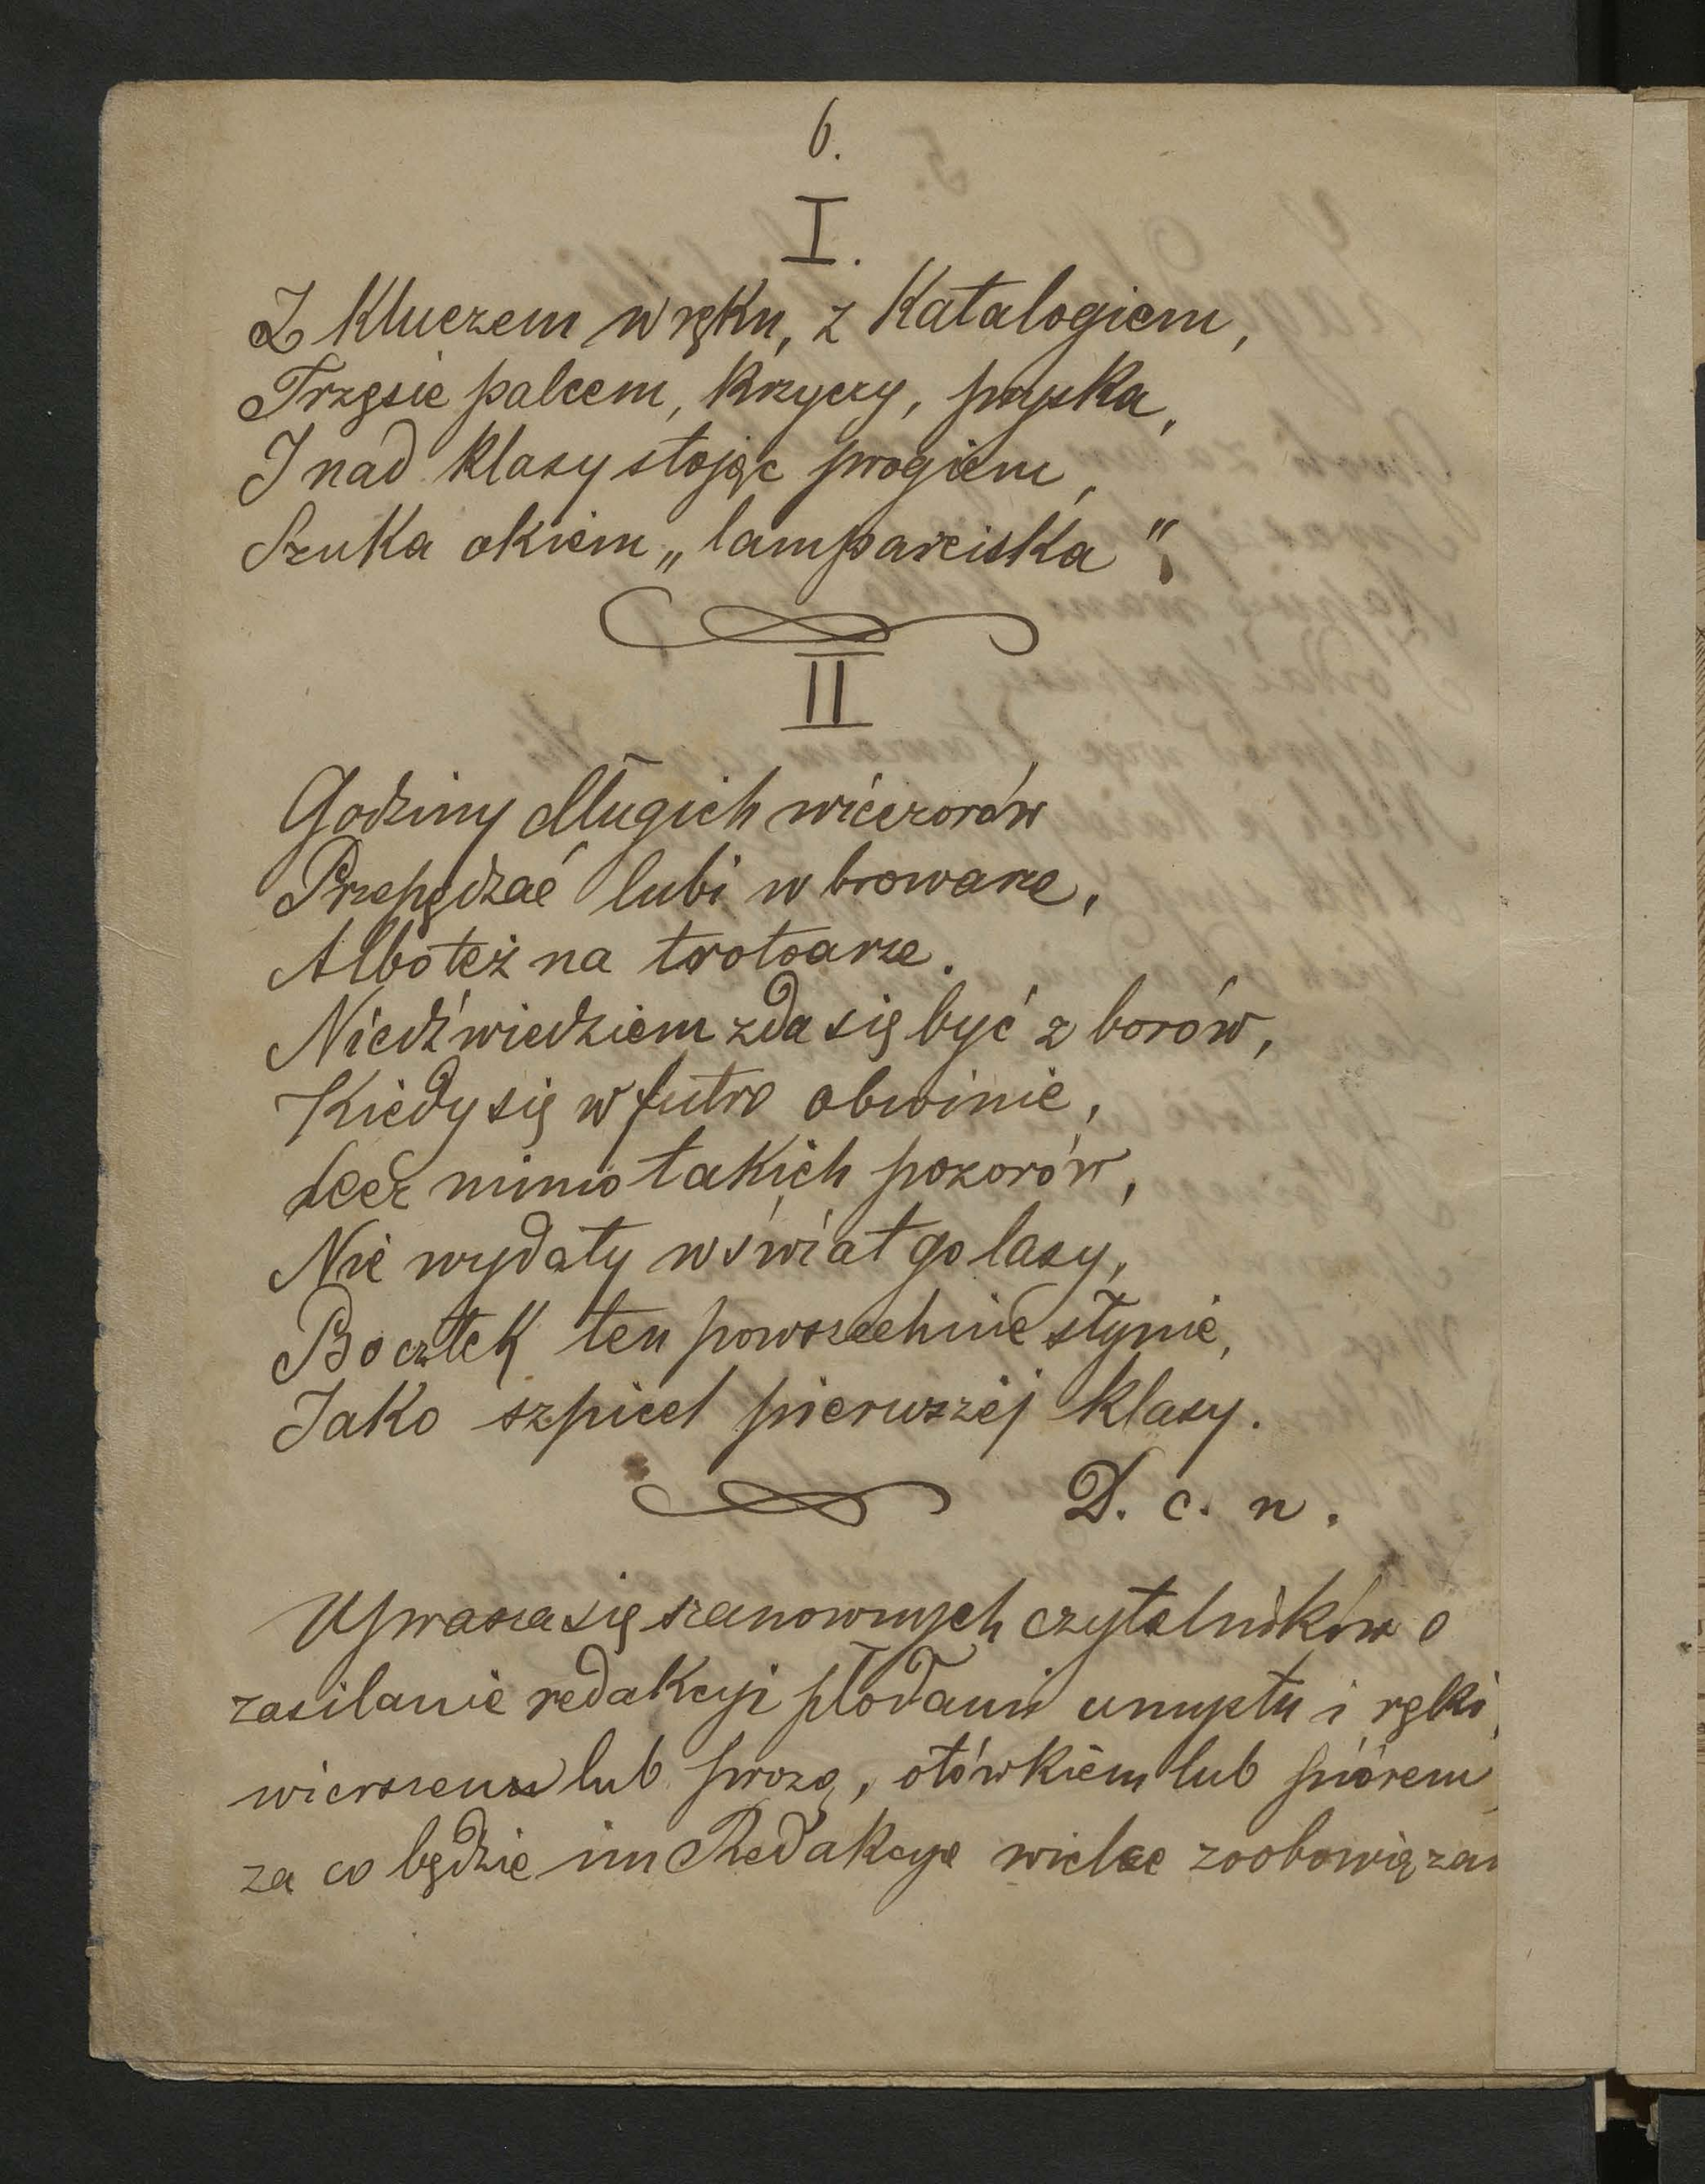 6.
I.
Z kluczem w ręku, z katalogiem,
Trzęsie palcem, krzyczy, pryska,
I nad klasy stojąc progiem,
Szuka okiem „lamparciska".
II
Godziny długich wieczorów
Przepędzać lubi w browarze,
Albo też na trotoarze.
Niedźwiedziem zda się być z borów,
Kiedy się w futro obwinie,
Lecz mimo takich pozorów,
Nie wydały w świat go lasy,
Bo człek ten powszechnie słynie,
Jako szpicel pierwszéj klasy.
D. c. n.
Uprasza się szanownych czytelników o
zasilanie redakcyi płodami umysłu i ręki,
wierszem lub prozą, ołówkiem lub piórem,
za co będzie im Redakcya wielce zoobowiązan